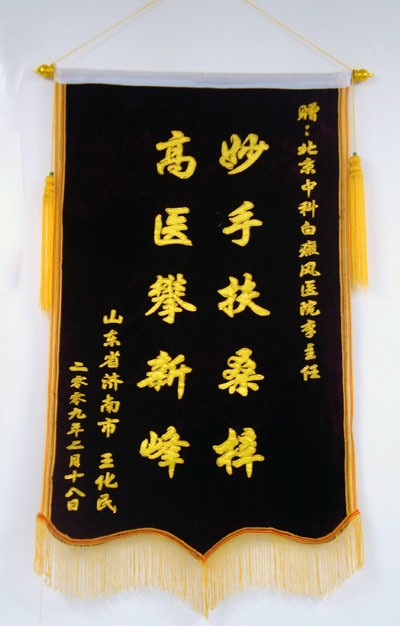 赠：北京中科白癜风医院李主任
妙手扶桑梓
高医攀新峰
山东省济南市 王化民
二零零九年二月十八日